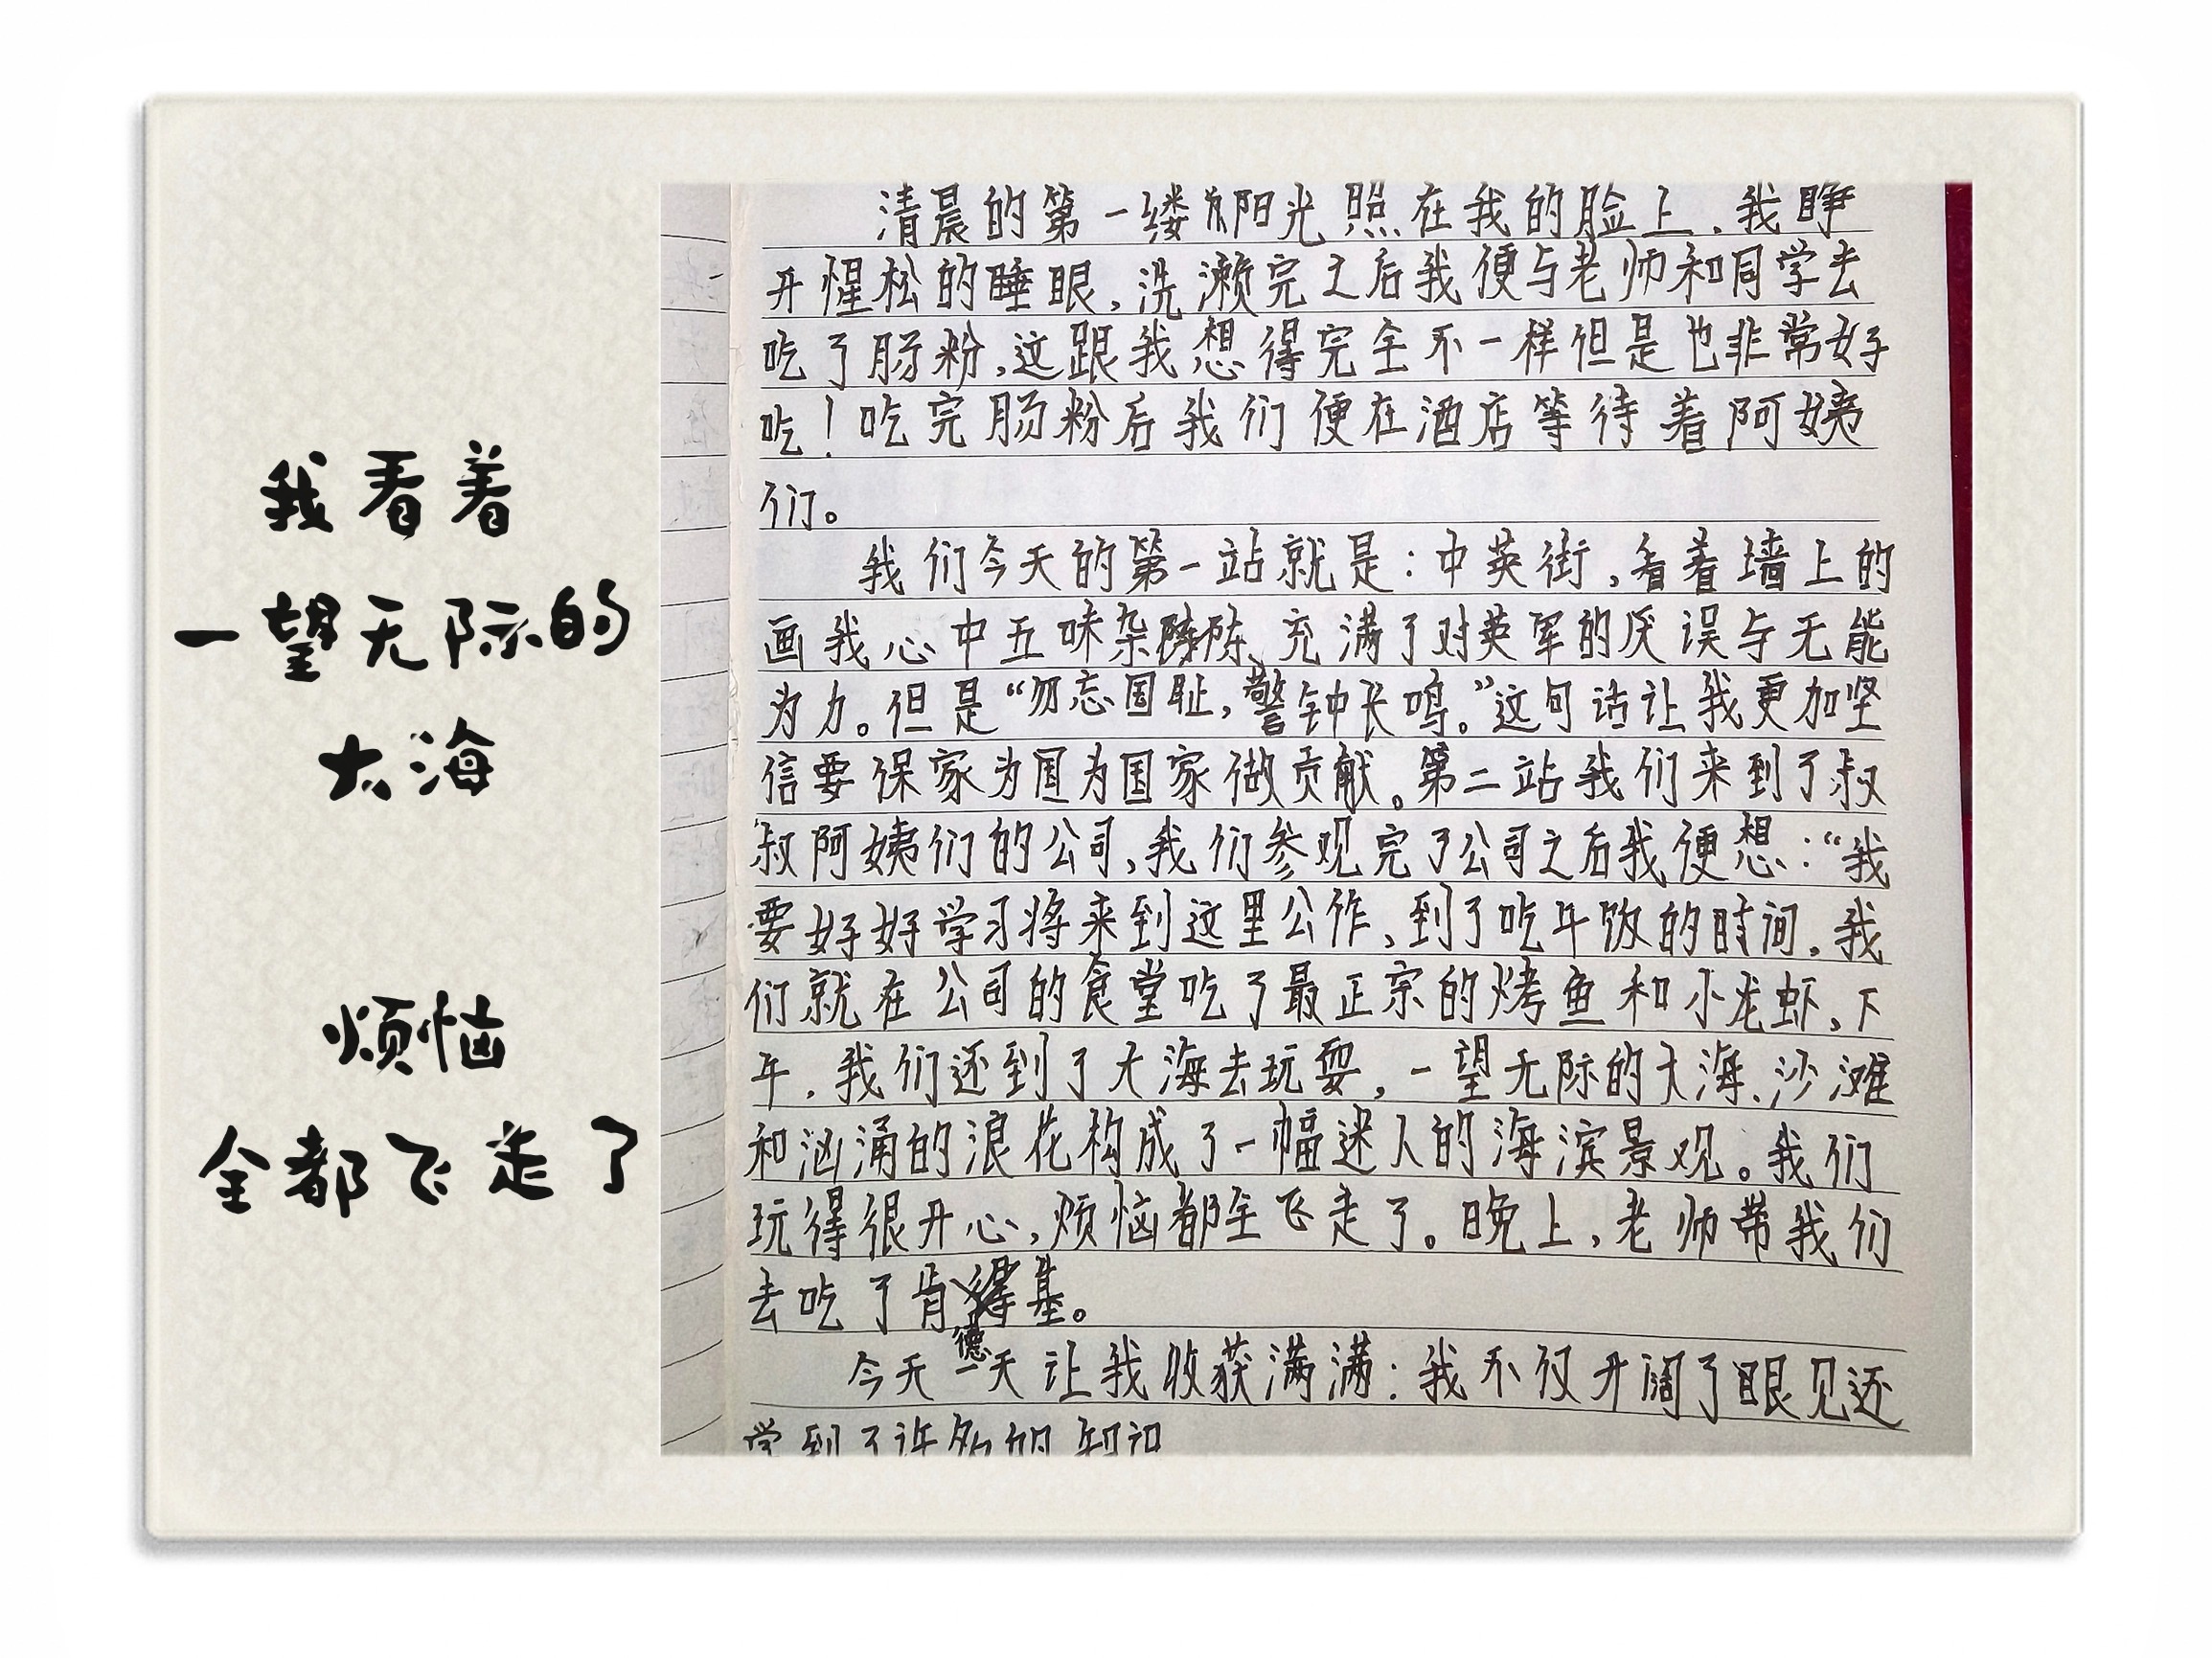 我看着
一望无际的
大海
烦恼
全都飞走了
清晨的第一缕阳光照在我的脸上，我睁
开惺松的睡眼，洗濑完之后我便与老师和同学去
吃了肠粉，这跟我想得完全不一样但是也非常好
吃！吃完肠粉后我们便在酒店等待着阿姨
们。
我们今天的第一站就是：中英街，看着墙上的
画我心中五味杂陈、充满了对英军的厌误与无能
为力。但是“勿忘国耻，警钟长鸣。”这句话让我更加坚
信要保家为国为国家做贡献。第二站我们来到了叔
叔阿姨们的公司，我们参观完了公司之后我便想：“我
要好好学习将来到这里公作、到了吃午饭的时间，我
们就在公司的食堂吃了最正宗的烤鱼和小龙虾，下
午，我们还到了大海去玩耍，一望无际的大海、沙滩
和汹涌的浪花构成了一幅迷人的海滨景观。我们
玩得很开心，烦恼都全飞走了。晚上，老师带我们
去吃了肯德基。
今天一天让我收获满满：我不仅开阔了眼见还
学到了许多的知识